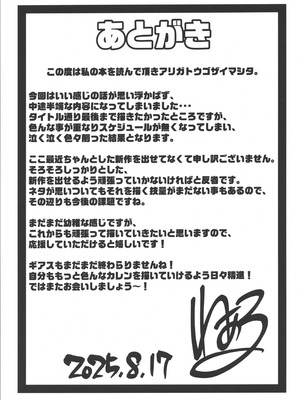 あとがき
この度は私の本を読んで頂きアリガトウゴザイマシタ。
今回はいい感じの話が思い浮かばず、
中途半端な内容になってしまいました・・・
タイトル通り最後まで描きたかったところですが、
色んな事が重なりスケジュールが無くなってしまい、
泣く泣く色々削った結果となります。
ここ最近ちゃんとした新作を出せてなくて申し訳ございません。
そろそろしっかりとした、
新作を出せるよう頑張っていかないければと反省です。
ネタが思いついてもそれを描く技量がまだない事もあるので、
その辺りも今後の課題ですね。
まだまだ幼稚な感じですが、
これからも頑張って描いていきたいと思いますので、
応援していただけると嬉しいです!
ギアスもまだまだ終わらりませんね!
自分ももっと色んなカレンを描いていけるよう日々精進!
ではまたお会いしましょう〜!
2025.8.17